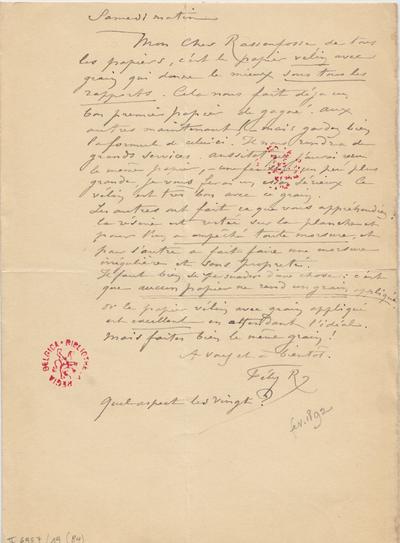 Samedi matin
Mon cher Rassenfosse de tous
les papiers, c'est le papier velin avec
grain qui donne le mieux sous tous les
rapports. Cela nous fait déjà un
bon premier papier de gagné. Aux
autres maintenant ! mais gardez bien
la formule de celui ci. Il nous rendra de
grands services. Aussitot que j'aurai reçu
le même papier, un peu plus
grand, je vous ferai un sérieux le
velin est très bon avec ce grain.
Les autres ont fait ce que vous appréhendiez :
la résine est restée sur la planche et
pour l'un a empêché toute morsure, et
pour l'autre a fait faire une morsure
irrégulière et sans propreté.
Il faut bien se persuader d'une chose : c'est
que aucun papier ne rend un grain appliqué.
or le papier velin avec grain appliqué
est excellent en attendant l'idéal.
Mais faites bien le même grain !
A vous et à bientot.
Fély R
Quel aspect les vingt ?
fev. 1892
BIBLIOTHECA REGIA BELGICA
II 6957 / 19 (84)